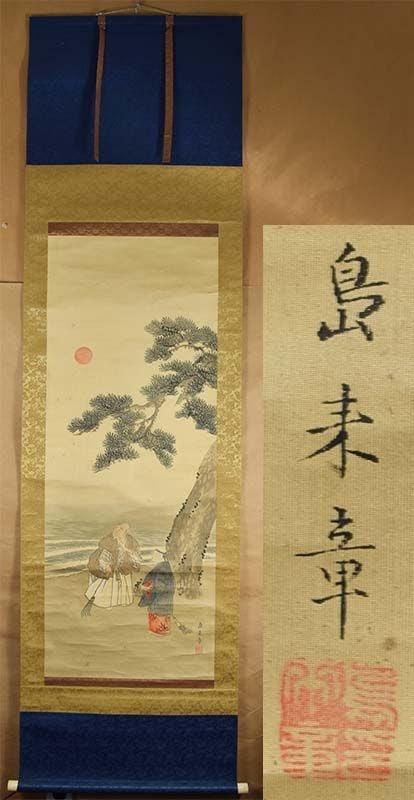 島来章